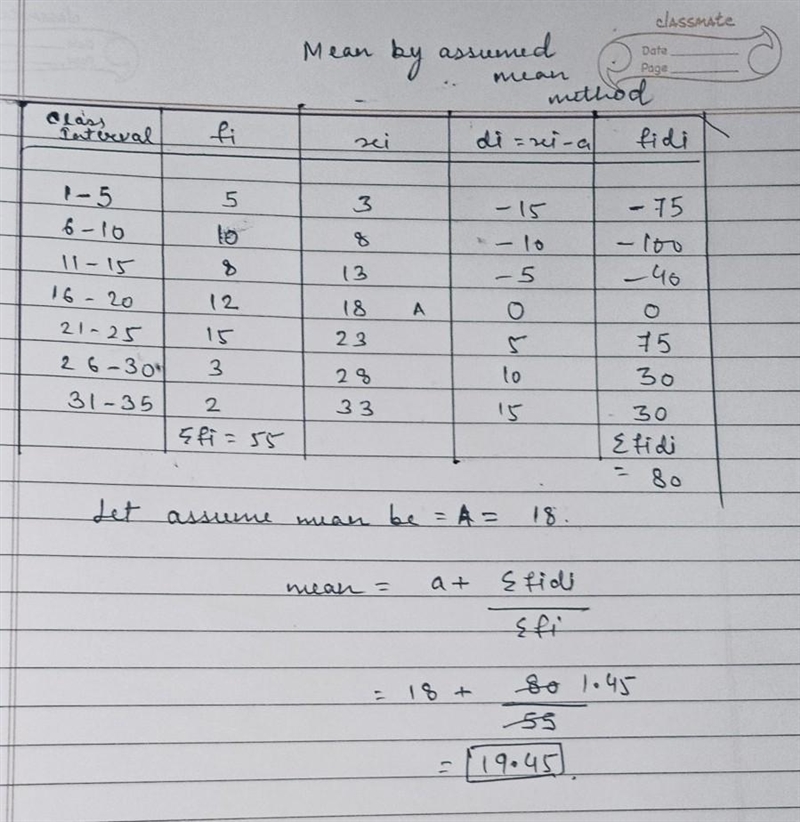 classmate
Date
Page
Mean by assumed
mean
method
Class Interval fi xi di = xi - a fidi
1-5 5 3 -15 -75
6-10 10 8 -10 -100
11-15 8 13 -5 -40
16-20 12 18 A 0 0
21-25 15 23 5 75
26-30 3 28 10 30
31-35 2 33 15 30
Σfi = 55 Σfidi
= 80
Let assume mean be = A = 18.
mean = a + Σfidi
Σfi
= 18 + 80 1.45
55
= 19.45.